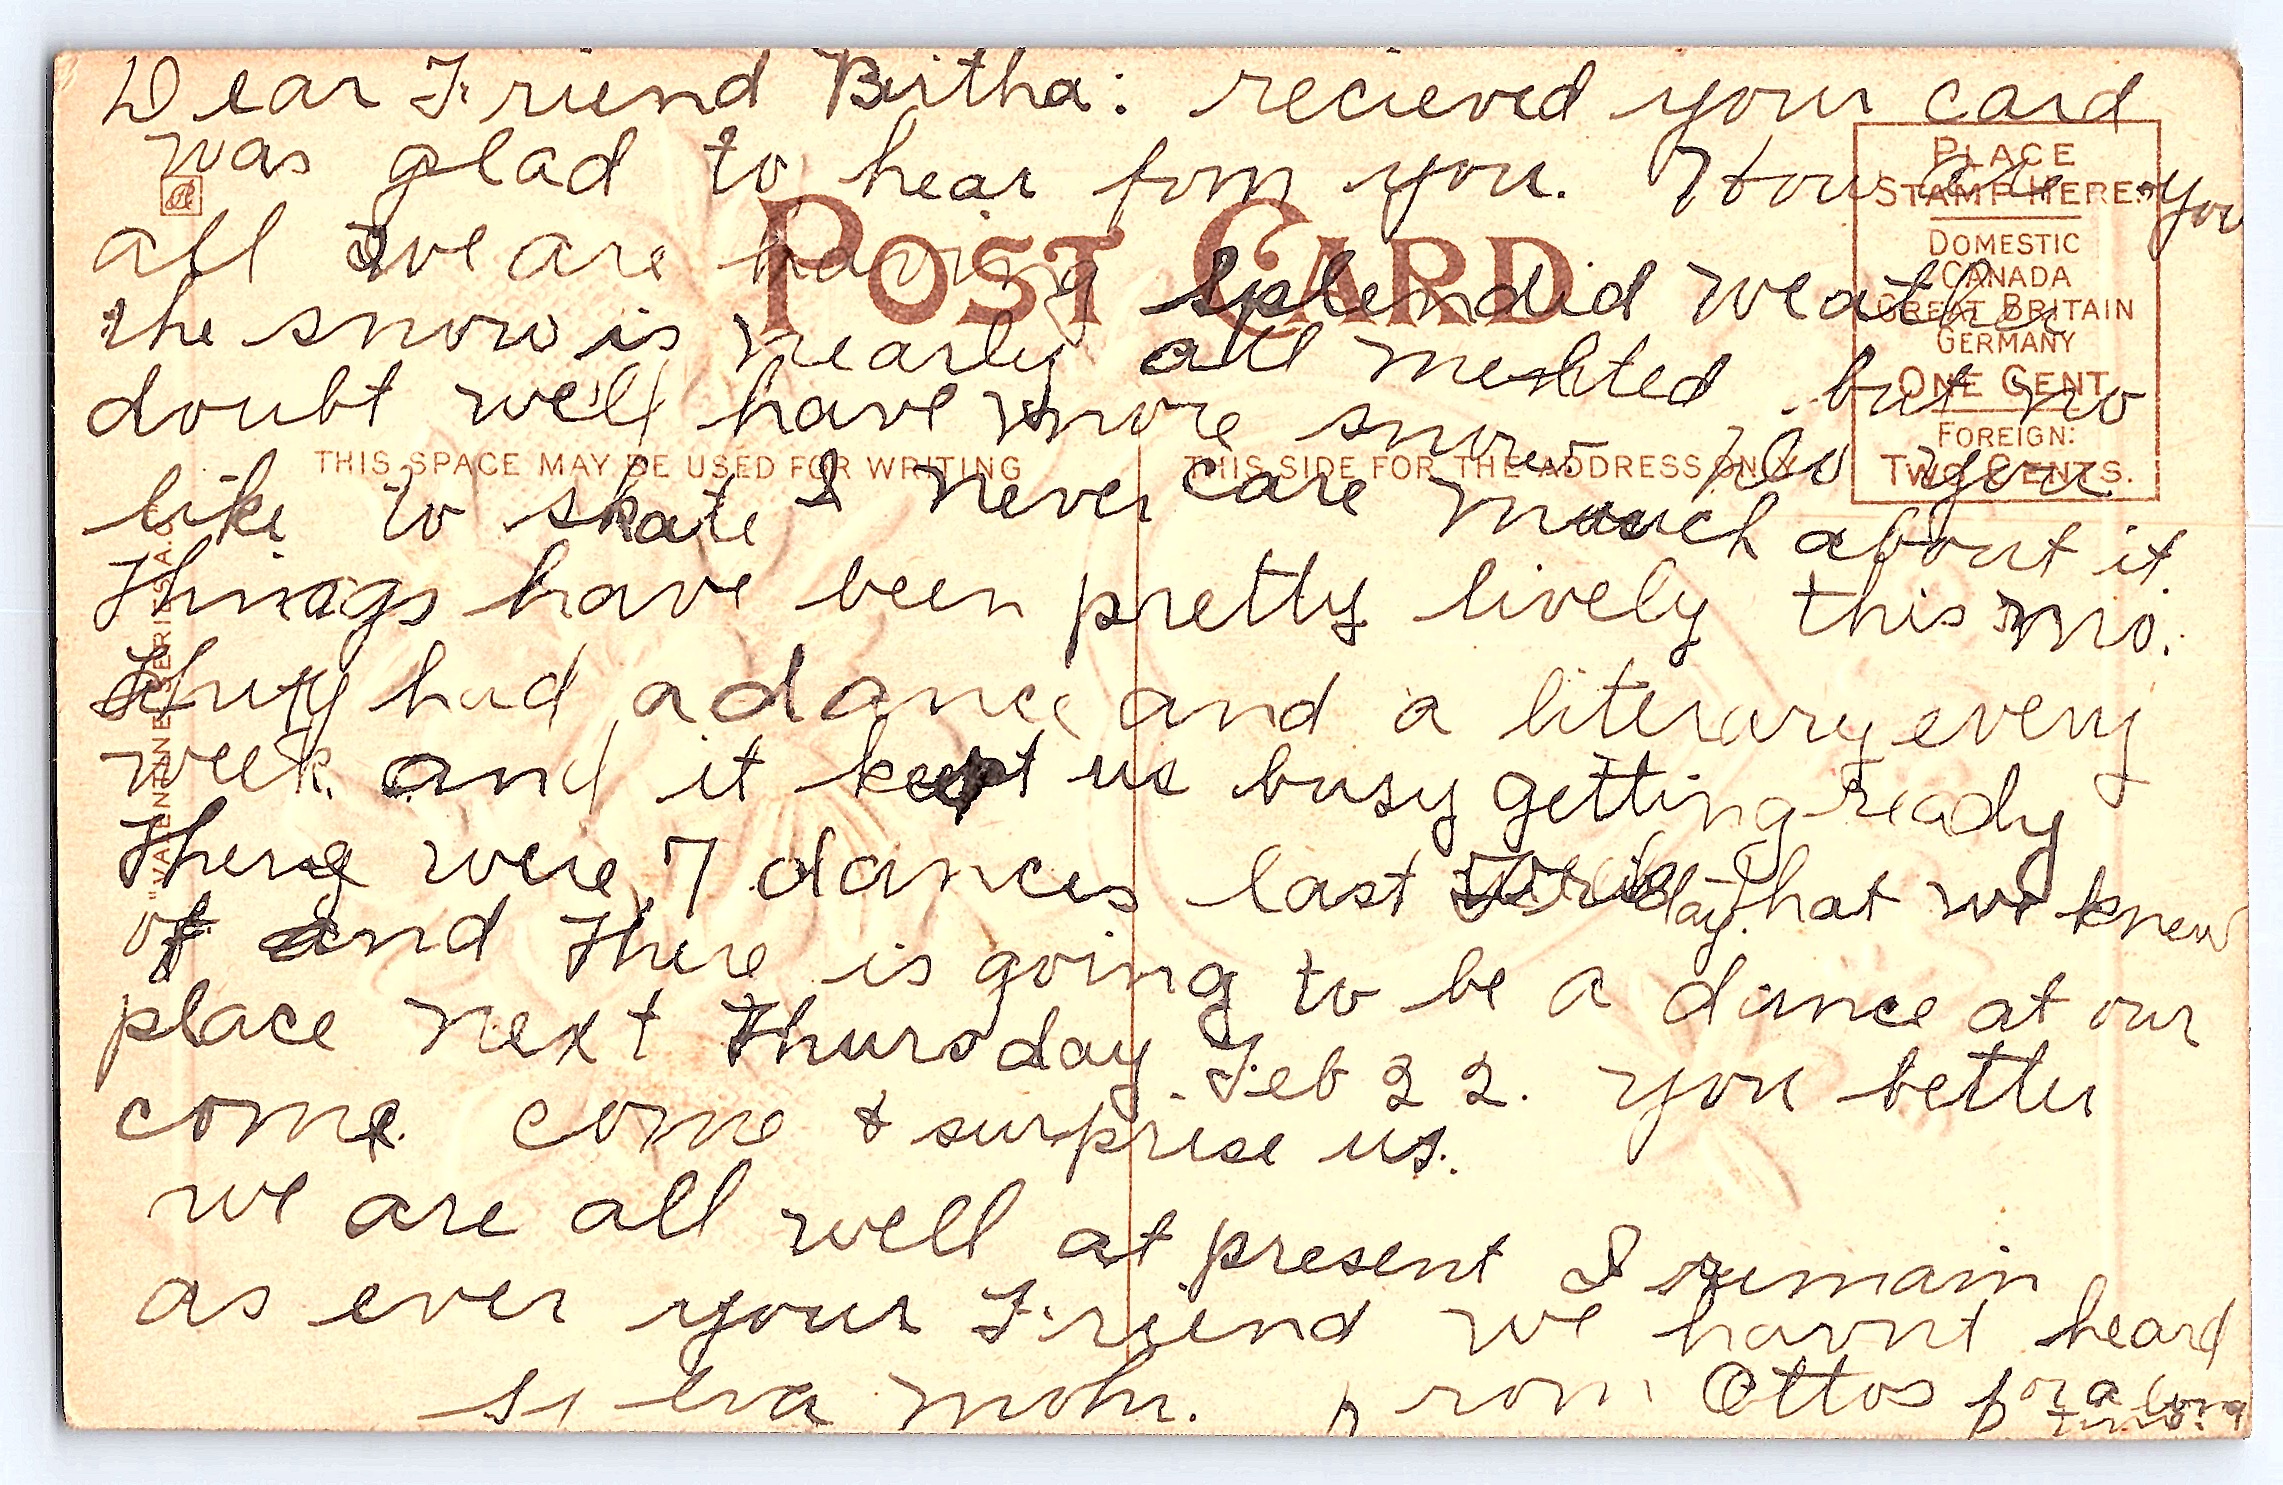 Dear Friend Birtha: recieved your card
was glad to hear fom you. How are you
all we are having splendid weather
the snow is nearly all melted but no
doubt we'll have more snow. Do you
like to skate I never care much about it.
Things have been pretty lively this mo.
They had a dance and a literary every
week and it kept us busy getting ready
There were 7 dances last day. that we knew
of and there is going to be a dance at our
place next Thursday. Feb 22. you better
come. come & surprise us.
we are all well at present I remain
as ever your Friend we havnt heard
from Ottos for a long
time.
Mohr.
POST CARD
THIS SPACE MAY BE USED FOR WRITING
THIS SIDE FOR THE ADDRESS ONLY
PLACE
STAMP HERE.
DOMESTIC
CANADA
GREAT BRITAIN
GERMANY
ONE CENT
FOREIGN:
TWO CENTS.
"VALENTINE" SERIES